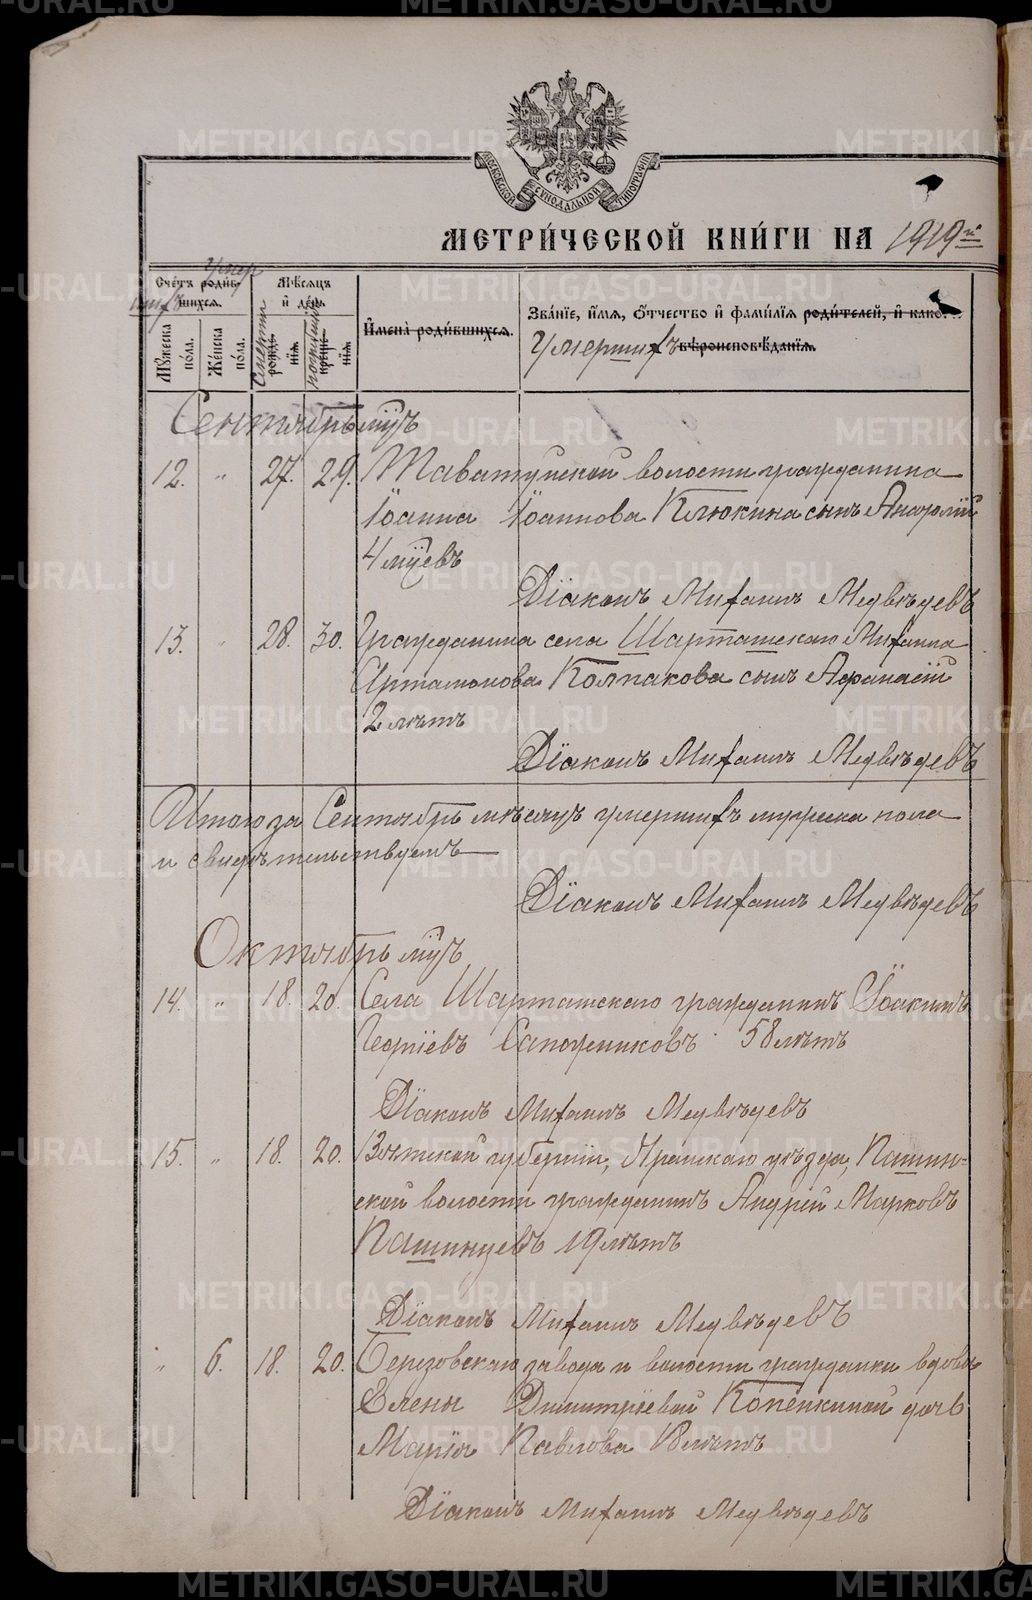 МОСКОВСКОЙ СѴНОДАЛЬНОЙ ТИПОГРАФІИ
МЕТРИ́ЧЕСКОЙ КНИ́ГИ НА 1919й
Сче́тъ роди́в- Умер
шихся. шихъ
Мѣ́сяцъ и҆ де́нь
Му́жеска по́ла.
Же́нска по́ла.
Смерти рожде́нія
погребенія креще́нія
И҆мена̀ роди́вшихся.
Зва́нїе, и҆́мя, ѻ҆́тчество и҆ фами́лїя роди́телей, и҆ како́...
Умершихъ вѣроисповѣ́данїя.
Сентябрь мцъ
12. " 27. 29. Таватуйской волости гражданина
Іоанна Іоаннова Клюкина сынъ Анатолій
4 мцевъ
Діаконъ Михаилъ Медвѣдевъ
13. " 28. 30. Гражданина села Шарташскаго Михаила
Артамонова Колпакова сынъ Афанасій
2 лѣтъ
Діаконъ Михаилъ Медвѣдевъ
Итого за Сентябрь мѣсяцъ умершихъ мужеска пола
и свидѣтельствуемъ
Діаконъ Михаилъ Медвѣдевъ
Октябрь мцъ
14. " 18. 20. Села Шарташскаго гражданинъ Іоакимъ
Георгіевъ Сапожниковъ 58 лѣтъ
Діаконъ Михаилъ Медвѣдевъ
15. " 18. 20. Вятской губерніи, Яранскаго уѣзда, Пашин-
ской волости гражданинъ Андрей Марковъ
Пашинцевъ 19 лѣтъ
Діаконъ Михаилъ Медвѣдевъ
" 6. 18. 20. Березовскаго завода и волости гражданки вдовы
Елены Димитріевой Копенкиной дочь
Марія Павлова лѣтъ
Діаконъ Михаилъ Медвѣдевъ
METRIKI.GASO-URAL.RU